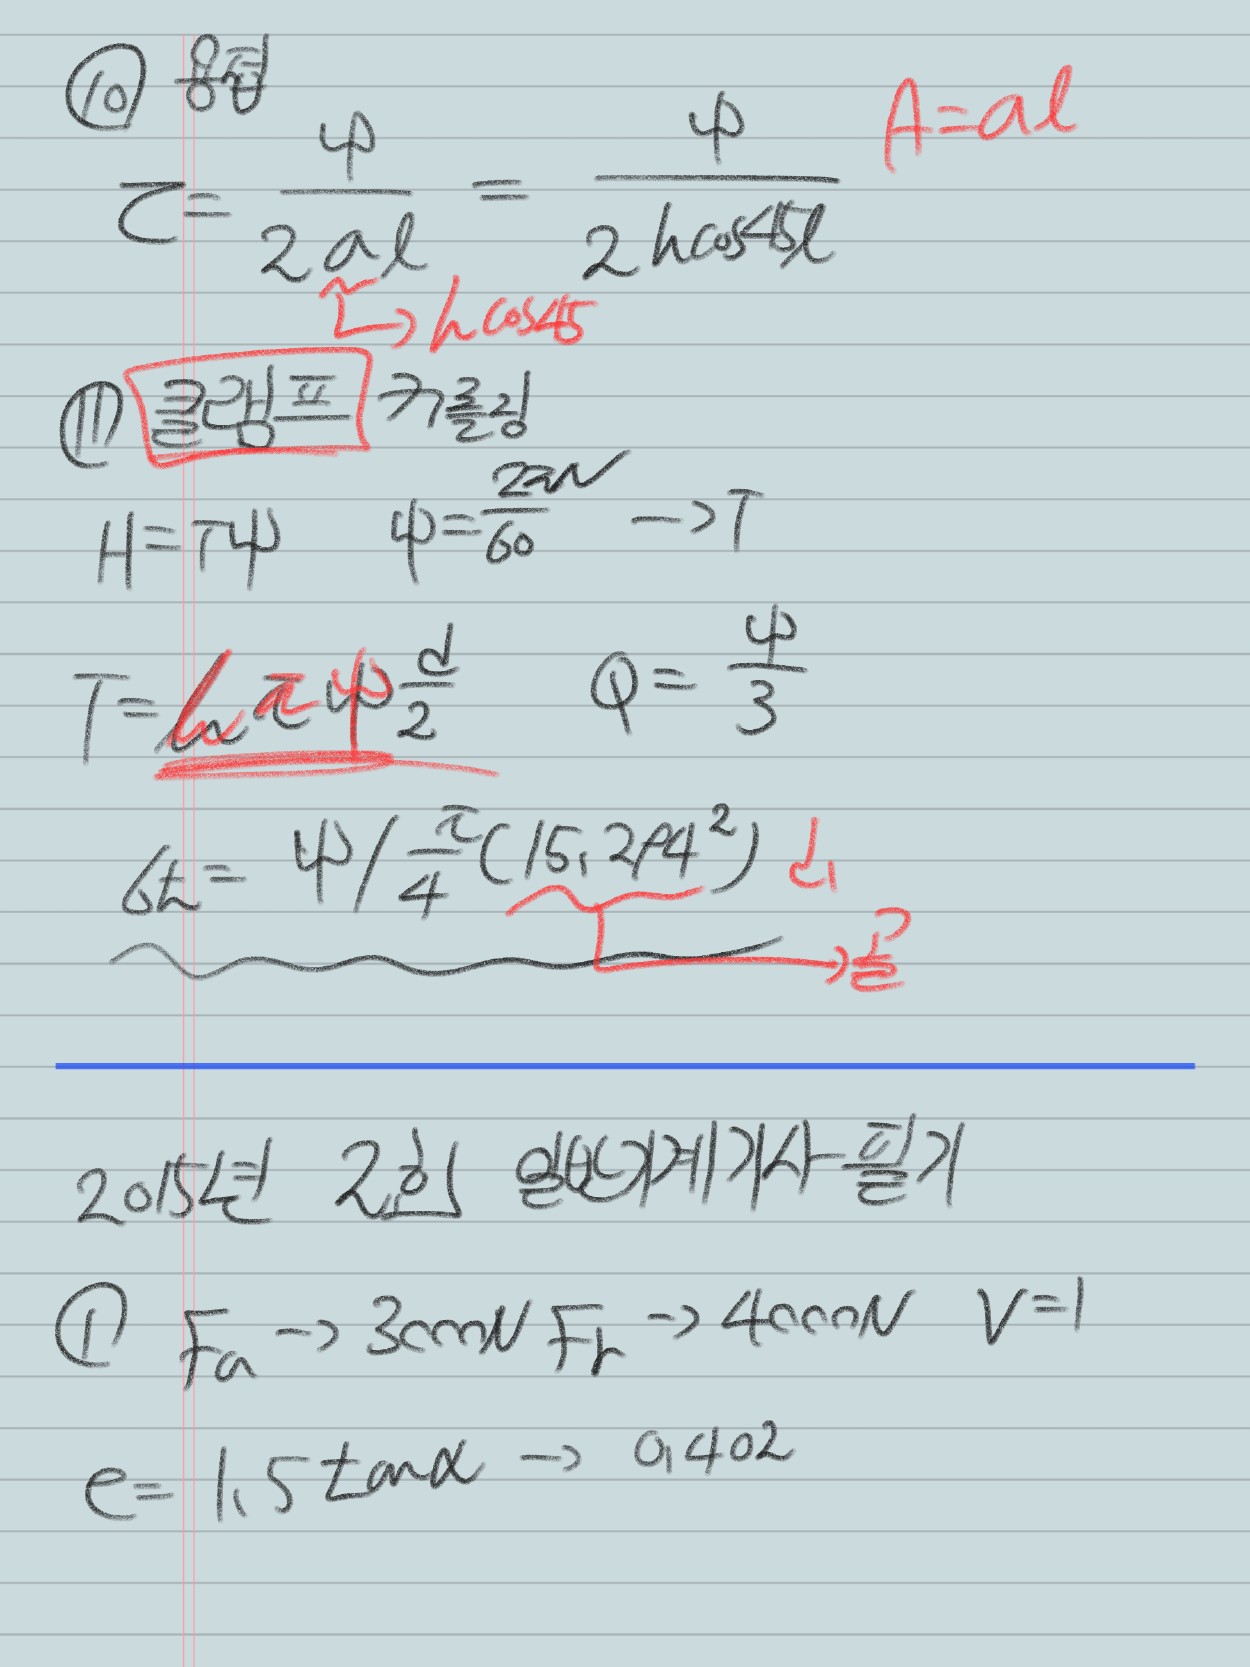 ⑩ 용접
A=al
τ= φ/2al = φ/2hcos45l
→ hcos45
⑪ 클램프 커플링
H=Tφ φ=2πN/60 → T
T=μπφ d/2 Q=φ/3
σt= φ/π/4(15.294²) d₁
→골
2015년 2회 일반기계기사필기
① Fa → 3000N Fr → 4000N V=1
e=1.5tanα → 0.402